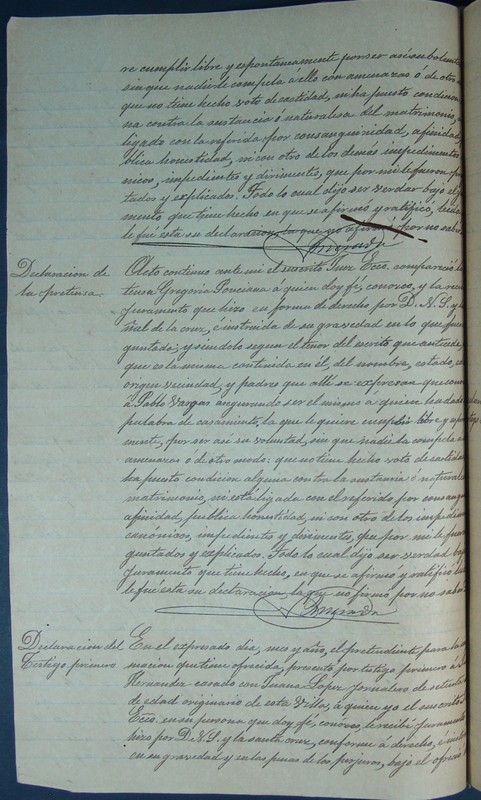 re cumplir libre y espontáneamente por ser así su volunta
sin que nadie le compela á ello con amenazas ó de otro
que no tiene hecho voto de castidad, ni ha puesto condicion
na contra la sustancia ó naturalesa del matrimonio,
ligado con la referida por consanguinidad, afinidad,
blica honestidad, ni con otro de los demás impedimentos
nicos, impedientes y dirimentes, que por mi le fueron
tados y explicados. Todo lo cual dijo ser verdad bajo el
mento que tiene hecho en que se afirmó y ratificó, leida
le fué esta su declaracion, la que no afirmó por no saber
Declaracion de
la pretensa.
Acto continuo ante mi el suscrito Juez Ecco. compareció
tensa Gregoria Ponciana á quien doy fé, conosco, y la reci
Juramento que hizo en forma de derecho por D. N. S. y
ñal de la cruz, é instruida de su gravedad en lo que fuere
guntada; y siendolo segun el tenor del escrito que antecede
que es la mesma contenida en él, del nombre, estado,
origen vecindad, y padres que allí se expresan que cono
á Pablo Vargas asegurando ser el mismo á quien ha dado
palabra de casamiento, la que le quiere cumplir libre y espon
ment, por ser así su voluntad, sin que nadie la compela
amenazas ó de otro modo: que no tiene hecho voto de castidad
ha puesto condicion alguna contra la sustancia ó natural
matrimonio, ni está ligada con el referido por consang
afinidad, publica honestidad, ni con otro de los impedim
canónicos, impedientes y dirimentes, que por mi le fueron
guntados y explicados. Todo lo cual dijo ser verdad bajo
Juramento que tiene hecho, en que se afirmó y ratificó
le fué esta su declaracion, la que no firmó por no saber
Declaracion del
Testigo primero
En el expresado dia, mes y año, el pretendiente para la
macion que tiene ofrecida, presentó por testigo primero á
Hernandez casado con Juana Lopez jornalero de setenta
de edad originario de esta Villa, á quien yo el suscrito
Ecco. en su persona que doy fé, conosco, le recibí juramento
hizo por D. N. S. y la santa cruz, conforme á derecho, é
en su gravedad y en las penas de los perjuros, bajo el ofreció